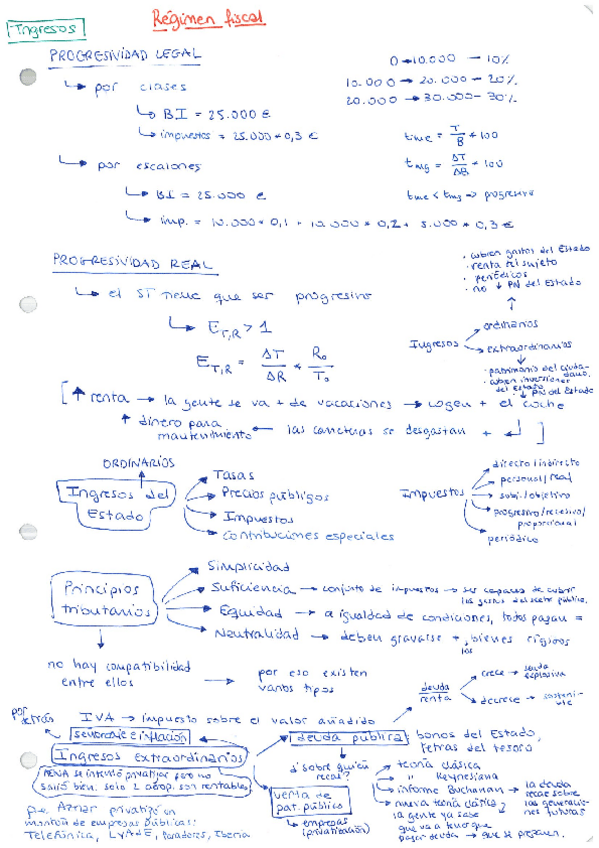 Ingresos
Régimen fiscal
PROGRESIVIDAD LEGAL
0 → 10.000 — 10%
10.000 → 20.000 – 20%
20.000 → 30.000 – 30%
↳ por clases
↳ BI = 25.000 €
↳ impuestos = 25.000 * 0,3 €
tme = T/B * 100
tmg = ΔT/ΔB * 100
tme < tmg => progresivo
↳ por escalones
↳ BI = 25.000 €
↳ imp. = 10.000 * 0,1 + 10.000 * 0,2 + 5.000 * 0,3 €
PROGRESIVIDAD REAL
↳ el ST tiene que ser progresivo
↳ E T,R > 1
E T,R = ΔT/ΔR * R₀/T₀
· cubren gastos del Estado
· renta del sujeto
· periódicos
· no ↓ PN del Estado
Ingresos
ordinarios
extraordinarios
· patrimonio del ciudadano
· cubren inversiones del Estado
· ↓ PN del Estado
[↑ renta → la gente se va + de vacaciones → cogen + el coche
↑ dinero para mantenimiento ← las carreteras se desgastan + ]
ORDINARIOS
Ingresos del Estado
Tasas
Precios públicos
Impuestos
Contribuciones especiales
Impuestos
directo / indirecto
personal / real
subj. / objetivo
progresivo / regresivo / proporcional
periódico
Principios tributarios
Simplicidad
Suficiencia → conjunto de impuestos → ser capaces de cubrir los gastos del sector público.
Equidad → a igualdad de condiciones, todos pagan =
Neutralidad → deben gravarse + los bienes rígidos
no hay compatibilidad entre ellos → por eso existen varios tipos
deuda
renta
crece → deuda explosiva
decrece → sostenible
por detrás
IVA → impuesto sobre el valor añadido
señoreaje e inflación
Ingresos extraordinarios
deuda pública
bonos del Estado,
letras del tesoro
¿sobre quién recae?
teoría clásica
" Keynesiana
informe Buchanan → la deuda recae sobre las generaciones futuras
nueva teoría clásica
la gente ya sabe
que va a tener que
pagar deuda → que se preparan.
venta de pat. público
↳ empresas (privatización)
AENA se intentó privatizar pero no
salió bien: solo 2 aerop. son rentables
Aznar privatizó un
montón de empresas públicas:
Telefónica, Paradores, Iberia